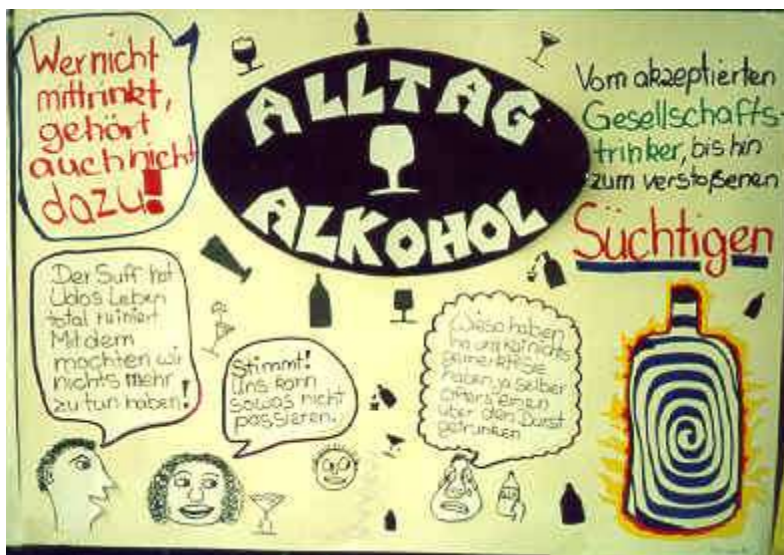 Wer nicht
mittrinkt,
gehört
auch nicht
dazu!
ALLTAG
ALKOHOL
Vom akzeptierten
Gesellschafts-
trinker, bis hin
zum verstoßenen
Süchtigen
Der Suff hat
Udos Leben
total ruiniert.
Mit dem
möchten wir
nichts mehr
zu tun haben!
Stimmt!
Uns kann
sowas nicht
passieren.
Wieso haben
nichts
gemerkt? Sie
haben ja selber
öfters einen
über den Durst
getrunken